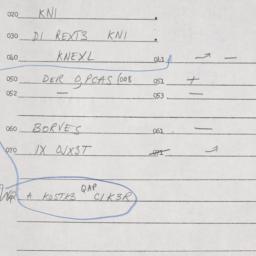 020 KNI .
030 DI REXT3 KNI .
040 KNEXL 041 → —
050 DER O,PCAS/OOB 051 +
052 — 053 —
060 BORVES 061 —
070 IX 0JX3T
A KOSTK3 QAP C1K3R